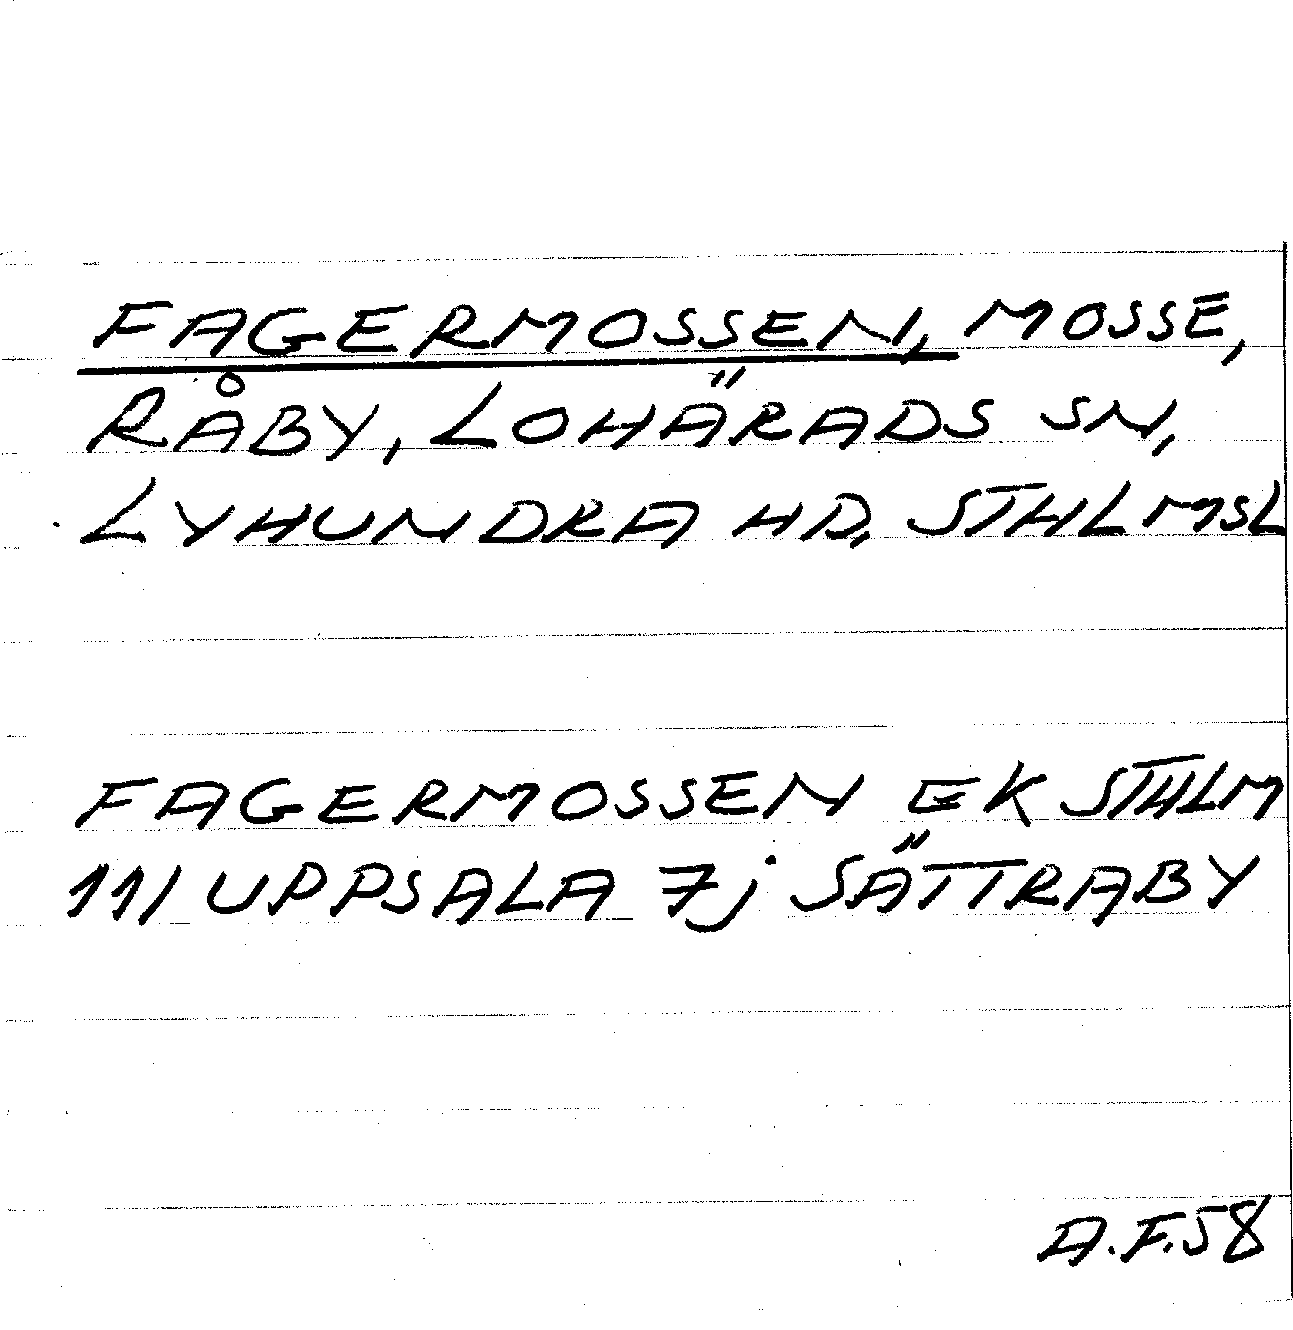 FAGERMOSSEN, MOSSE,
RÅBY, LOHÄRADS SN,
LYHUNDRA HD, STHLMSL
FAGERMOSSEN EK STHLM
11/ UPPSALA 7j SÄTTRABY
A.F.58